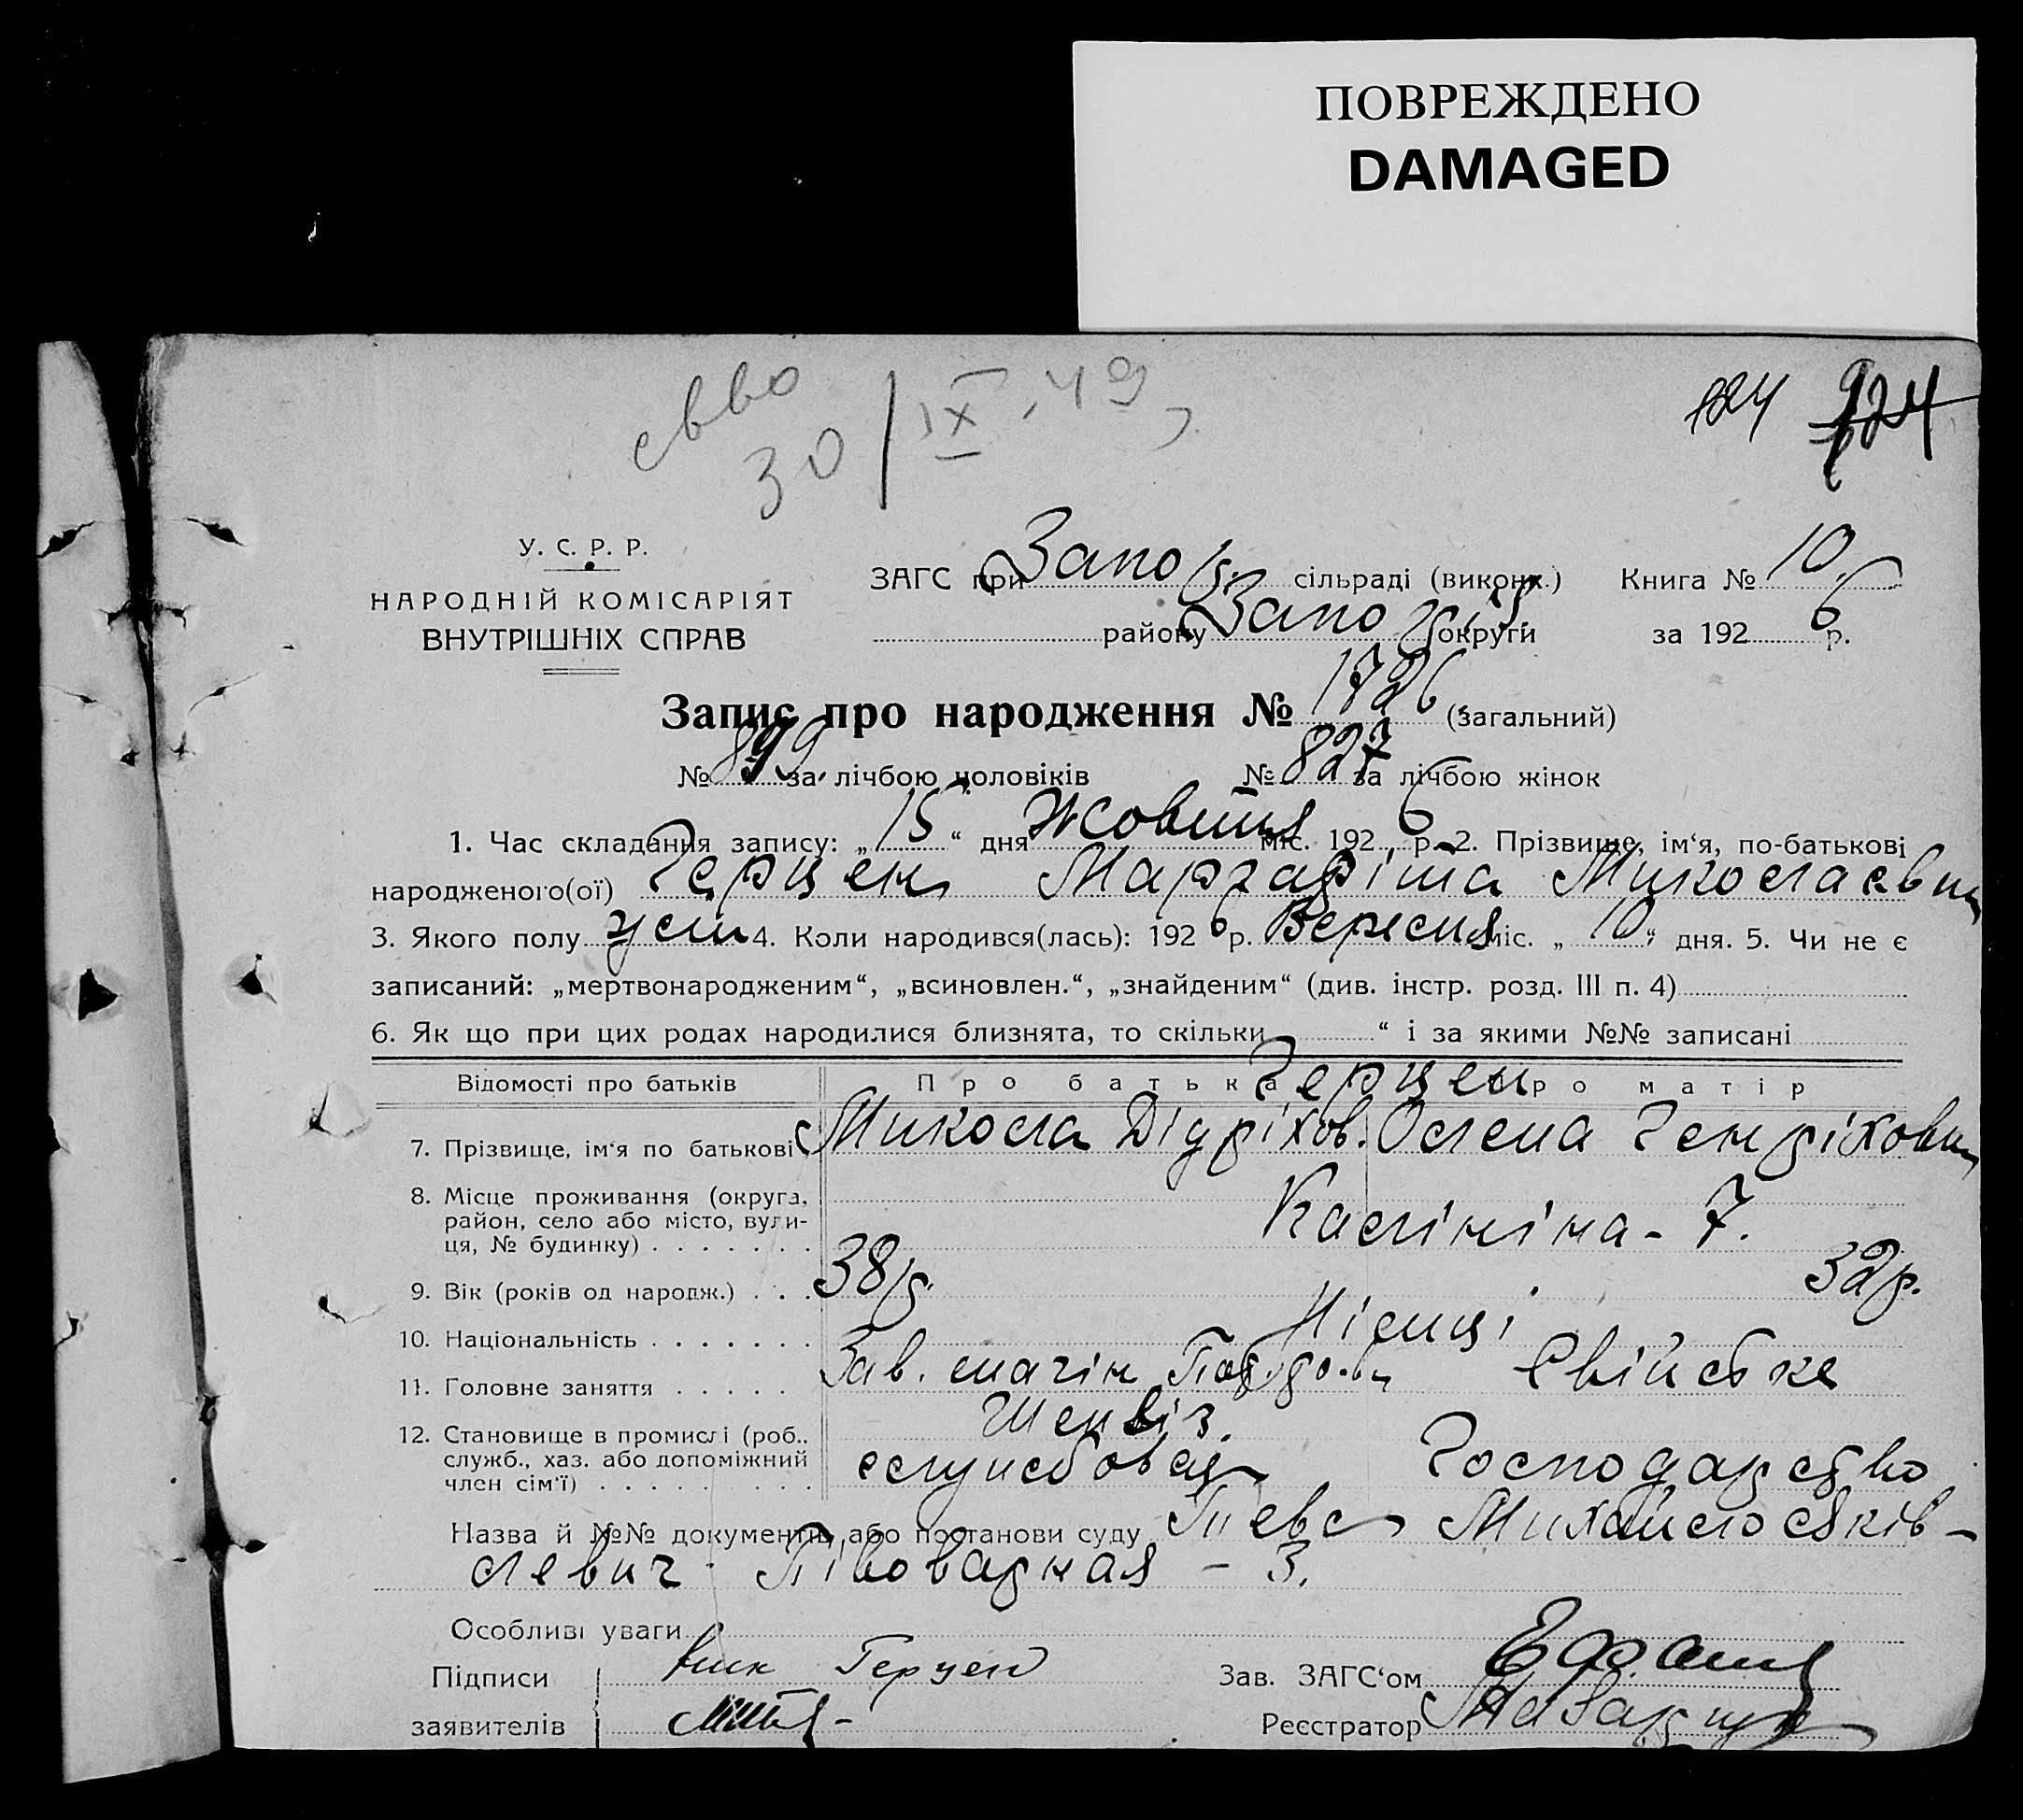 ПОВРЕЖДЕНО
DAMAGED
св-во
30/IX-49
124 124
У. С. Р. Р.
НАРОДНІЙ КОМІСАРІЯТ
ВНУТРІШНІХ СПРАВ
ЗАГС при Запоріз. сільраді (виконк.) Книга № 10
району Запоріз. округи за 1926 р.
Запис про народження № 1726 (загальний)
№ 899 за лічбою чоловіків № 827 за лічбою жінок
1. Час складання запису: „15“ дня Жовтня міс. 1926 р. 2. Прізвище, ім‘я, по-батькові
народженого(ої) Герцен Маргаріта Миколаєвн
3. Якого полу жін 4. Коли народився(лась): 1926 р. Вересня міс. „10“ дня. 5. Чи не є
записаний: „мертвонародженим“, „всиновлен.“, „знайденим“ (див. інстр. розд. III п. 4)
6. Як що при цих родах народилися близнята, то скільки “ і за якими №№ записані
Відомості про батьків Про батька Про матір
Герцен
7. Прізвище, ім‘я по батькові Микола Дідріхов. Олена Генріховн
8. Місце проживання (округа, район, село або місто, вули-
ця, № будинку) Калініна - 7.
9. Вік (років од народж.) 38 р. 32 р.
10. Національність Німці
11. Головне заняття Зав. Свійське
12. Становище в промислі (роб.,
служб., хаз. або допоміжний
член сім‘ї) службовец Господарство
Назва й №№ документів або постанови суду
Півоварная - 3.
Особливі уваги
Підписи Ник Герцен Зав. ЗАГС‘ом
заявителів Реєстратор